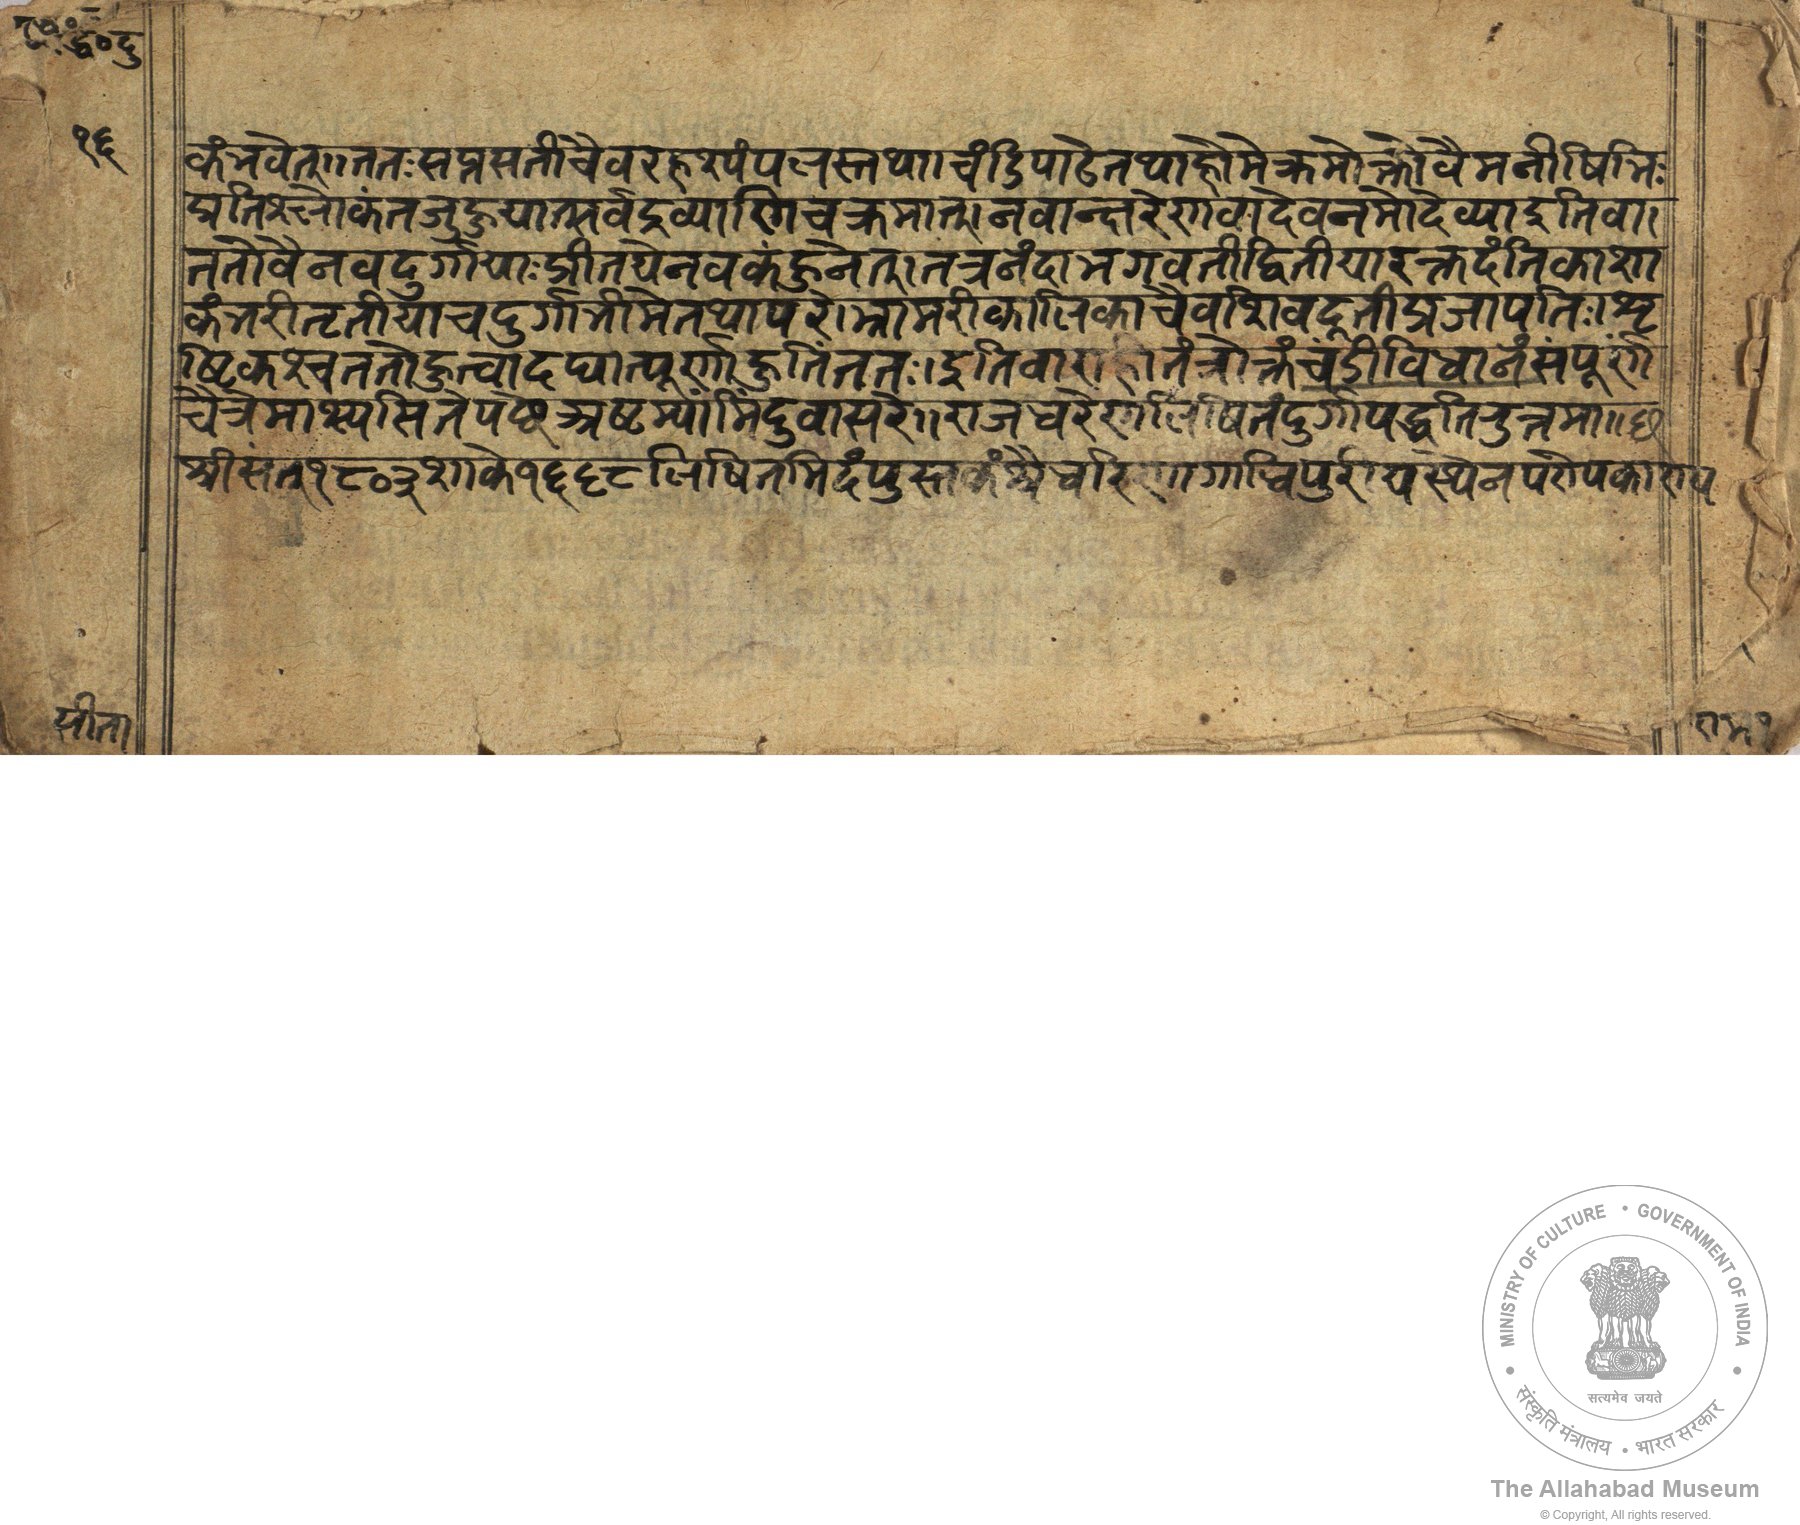 १६
कंभवेत्॥ततःसप्तसतीचैवरहश्यंपलस्तथा॥चंडिपाठेतथाहोमेक्रमोक्तोवैमनीषिभिः
प्रतिश्लोकंतजुहुयात्सर्वद्रव्याणिचक्रमात्।नवाक्षरेणवादेवनमोदेव्याइतिवा।
ततोवैनवदुर्गायाःप्रीतयेनवकंहुनेत्।तत्रनंदाभगवतीद्वितीयारक्तदंतिकाशा
कंभरीतृतीयाचदुर्गाभीमेतथापरे।भ्रामरीकालिकाचैवशिवदूतीप्रजापतिः।सृ
ष्टिकश्चततोहुत्वादद्यात्पूर्णाहुतिंततः।इतिवाराहीतंत्रोक्तंचंडीविधानंसंपूर्णं
चैत्रेमाश्यसितेपक्षेअष्टम्यांमिंदुवासरे॥राजधरेणलिषितंदुर्गापद्धतिउत्तमा॥
श्रीसंत्१८०३शाके१६६८लिषितमिदंपुस्तकं
राम१
MINISTRY OF CULTURE • GOVERNMENT OF INDIA
सत्यमेव जयते
संस्कृति मंत्रालय • भारत सरकार
The Allahabad Museum
© Copyright, All rights reserved.